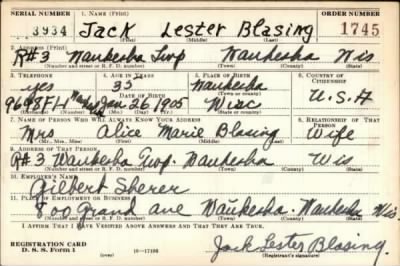 SERIAL NUMBER 1. NAME (Print) ORDER NUMBER
3934 Jack Lester Blasing 1745
(First) (Middle) (Last)
2. ADDRESS (Print)
R#3 Waukesha Twp Waukesha Wis
(Number and street or R. F. D. number) (Town) (County) (State)
3. TELEPHONE 4. AGE IN YEARS 5. PLACE OF BIRTH 6. COUNTRY OF CITIZENSHIP
yes 35 Waukesha
DATE OF BIRTH (Town or county)
9698F4 Jan 26 1905 Wisc U.S.A
(Mo.) (Day) (Yr.) (State or country)
7. NAME OF PERSON WHO WILL ALWAYS KNOW YOUR ADDRESS 8. RELATIONSHIP OF THAT PERSON
Mrs Alice Marie Blasing Wife
(Mr., Mrs., Miss) (First) (Middle) (Last)
9. ADDRESS OF THAT PERSON
R#3 Waukesha Twp. Waukesha Wis
(Number and street or R. F. D. number) (Town) (County) (State)
10. EMPLOYER'S NAME
Gilbert Sherer
11. PLACE OF EMPLOYMENT OR BUSINESS
800 Grand ave Waukesha Waukesha Wis.
(Number and street or R. F. D. number) (Town) (County) (State)
I AFFIRM THAT I HAVE VERIFIED ABOVE ANSWERS AND THAT THEY ARE TRUE.
REGISTRATION CARD
D. S. S. Form 1 Jack Lester Blasing.
(Registrant's signature)